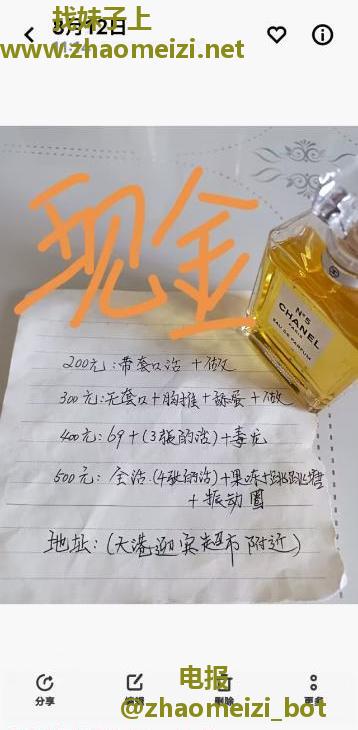 找妹子上
8月12日
www.zhaomeizi.net
现金
N°5
CHANEL
PARIS
EAU DE PARFUM
200元:带套口活 + 做
300元:无套口+胸推+舔蛋+做
400元:69+(3张的活)+毒龙
500元: 全活.(4张的活)+果冻+跳跳糖
+振动圈
地址:(大港迎宾超市附近)
电报
分享
编辑
删除
更多
@zhaomeizi_bot